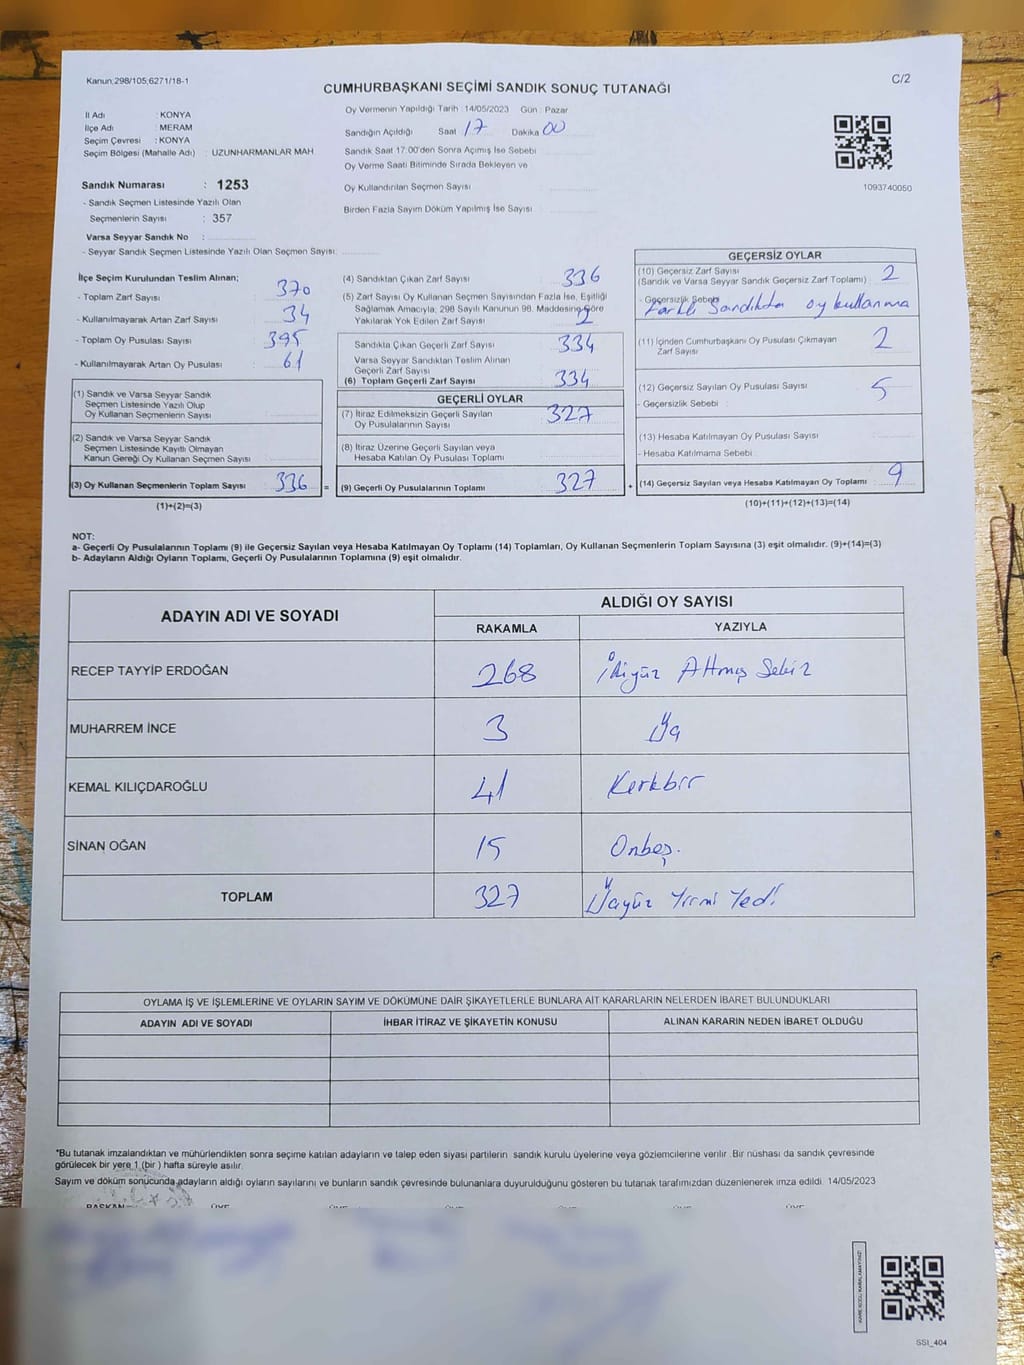 Kanun;298/105;6271/18-1
C/2
CUMHURBAŞKANI SEÇİMİ SANDIK SONUÇ TUTANAĞI
İl Adı : KONYA
İlçe Adı : MERAM
Seçim Çevresi : KONYA
Seçim Bölgesi (Mahalle Adı) : UZUNHARMANLAR MAH
Sandık Numarası : 1253
- Sandık Seçmen Listesinde Yazılı Olan
Seçmenlerin Sayısı : 357
Varsa Seyyar Sandık No :
- Seyyar Sandık Seçmen Listesinde Yazılı Olan Seçmen Sayısı:
Oy Vermenin Yapıldığı Tarih :14/05/2023 Gün : Pazar
Sandığın Açıldığı Saat 17 Dakika 00
Sandık Saat 17:00'den Sonra Açımış İse Sebebi
Oy Verme Saati Bitiminde Sırada Bekleyen ve
Oy Kullandırılan Seçmen Sayısı
Birden Fazla Sayım Döküm Yapılmış İse Sayısı
1093740050
İlçe Seçim Kurulundan Teslim Alınan;
- Toplam Zarf Sayısı : 370
- Kullanılmayarak Artan Zarf Sayısı : 34
- Toplam Oy Pusulası Sayısı : 395
- Kullanılmayarak Artan Oy Pusulası : 61
(1) Sandık ve Varsa Seyyar Sandık
Seçmen Listesinde Yazılı Olup
Oy Kullanan Seçmenlerin Sayısı
(2) Sandık ve Varsa Seyyar Sandık
Seçmen Listesinde Kayıtlı Olmayan
Kanun Gereği Oy Kullanan Seçmen Sayısı
(3) Oy Kullanan Seçmenlerin Toplam Sayısı 336 =
(1)+(2)=(3)
(4) Sandıktan Çıkan Zarf Sayısı 336
(5) Zarf Sayısı Oy Kullanan Seçmen Sayısından Fazla İse, Eşitliği
Sağlamak Amacıyla; 298 Sayılı Kanunun 98. Maddesine Göre
Yakılarak Yok Edilen Zarf Sayısı 2
Sandıkta Çıkan Geçerli Zarf Sayısı 334
Varsa Seyyar Sandıktan Teslim Alınan
Geçerli Zarf Sayısı
(6) Toplam Geçerli Zarf Sayısı 334
GEÇERLİ OYLAR
(7) İtiraz Edilmeksizin Geçerli Sayılan 327
Oy Pusulalarının Sayısı
(8) İtiraz Üzerine Geçerli Sayılan veya
Hesaba Katılan Oy Pusulası Toplamı
(9) Geçerli Oy Pusulalarının Toplamı 327 +
GEÇERSİZ OYLAR
(10) Geçersiz Zarf Sayısı 2
(Sandık ve Varsa Seyyar Sandık Geçersiz Zarf Toplamı)
- Geçersizlik Sebebi
Farklı Sandıkta oy kullanma
(11) İçinden Cumhurbaşkanı Oy Pusulası Çıkmayan 2
Zarf Sayısı
(12) Geçersiz Sayılan Oy Pusulası Sayısı 5
- Geçersizlik Sebebi :
(13) Hesaba Katılmayan Oy Pusulası Sayısı
- Hesaba Katılmama Sebebi
(14) Geçersiz Sayılan veya Hesaba Katılmayan Oy Toplamı 9
(10)+(11)+(12)+(13)=(14)
NOT:
a- Geçerli Oy Pusulalarının Toplamı (9) ile Geçersiz Sayılan veya Hesaba Katılmayan Oy Toplamı (14) Toplamları, Oy Kullanan Seçmenlerin Toplam Sayısına (3) eşit olmalıdır. (9)+(14)=(3)
b- Adayların Aldığı Oyların Toplamı, Geçerli Oy Pusulalarının Toplamına (9) eşit olmalıdır.
ADAYIN ADI VE SOYADI
ALDIĞI OY SAYISI
RAKAMLA YAZIYLA
RECEP TAYYİP ERDOĞAN 268 İkiyüz Altmış Sekiz
MUHARREM İNCE 3 Üç
KEMAL KILIÇDAROĞLU 41 Kerkbir
SİNAN OĞAN 15 Onbeş.
TOPLAM 327 Üçyüz Yirmi Yedi
OYLAMA İŞ VE İŞLEMLERİNE VE OYLARIN SAYIM VE DÖKÜMÜNE DAİR ŞİKAYETLERLE BUNLARA AİT KARARLARIN NELERDEN İBARET BULUNDUKLARI
ADAYIN ADI VE SOYADI İHBAR İTİRAZ VE ŞİKAYETİN KONUSU ALINAN KARARIN NEDEN İBARET OLDUĞU
*Bu tutanak imzalandıktan ve mühürlendikten sonra seçime katılan adayların ve talep eden siyasi partilerin sandık kurulu üyelerine veya gözlemcilerine verilir. Bir nüshası da sandık çevresinde
görülecek bir yere 1 (bir ) hafta süreyle asılır.
Sayım ve döküm sonucunda adayların aldığı oyların sayılarını ve bunların sandık çevresinde bulunanlara duyurulduğunu gösteren bu tutanak tarafımızdan düzenlenerek imza edildi. 14/05/2023
BAŞKAN ÜYE ÜYE ÜYE ÜYE ÜYE ÜYE
KAREKODU KARALAMAYINIZ!
SSI_404